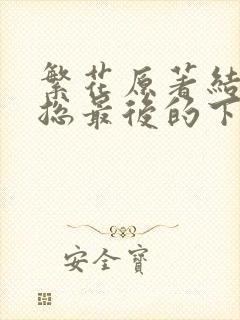 繁花原著結
總最後的下
安全寶